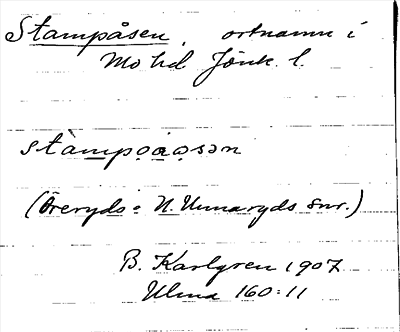 Stampåsen, ortnamn i
Mo hd Jönk. l.
stàmpo̯a̯o̯sən
(Öreryds o N. Unnaryds snr.)
B. Karlgren 1907
Ulma 160:11